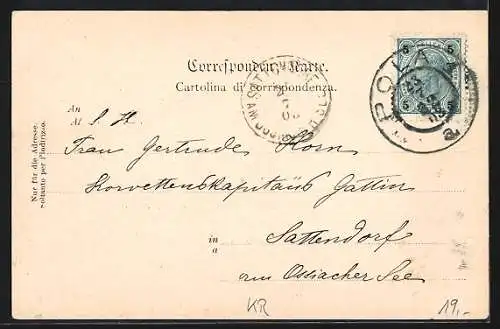 Correspondenz-Karte.
Cartolina di corrispondenza.
An
Al
S. H.
Frau Gertrude Horn
Korvettenskapitäns Gattin
in
a
Sattendorf
am Ossiacher See
Nur für die Adresse.
Soltanto per l'indirizzo.
5 5
5 5
POLA
a
KR
19,-